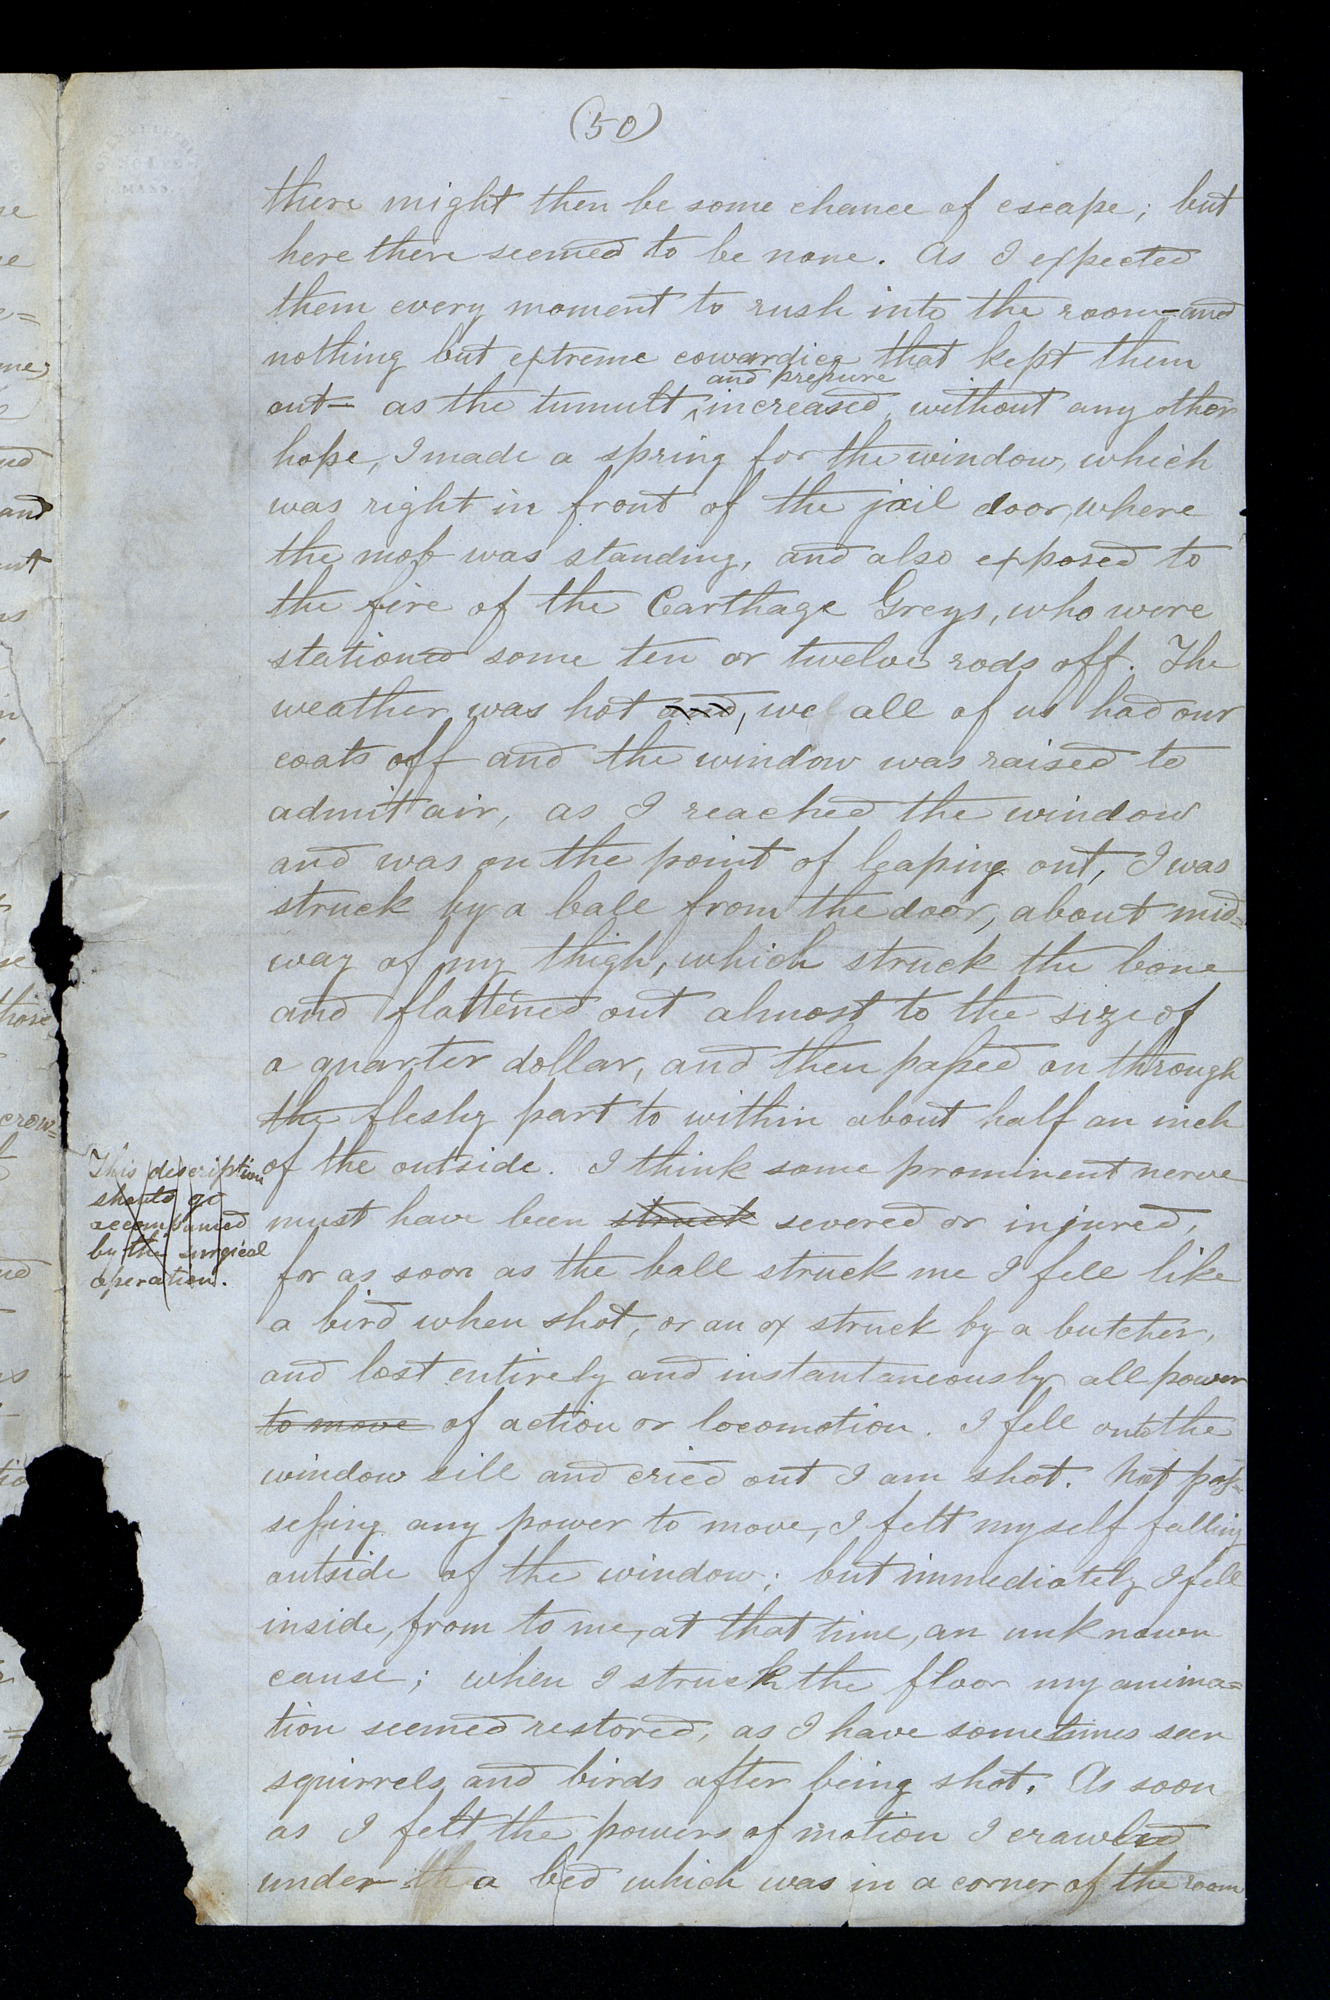 (50)
there might then be some chance of escape; but
here there seemed to be none. As I expected
them every moment to rush into the room—and
nothing but extreme cowardice that kept them
and prepure
out— as the tumult ^ increased, without any other
hope, I made a spring for the window, which
was right in front of the jail door, where
the mob was standing, and also exposed to
the fire of the Carthage Greys, who were
stationed some ten or twelve rods off. The
weather was hot and, we all of us had our
coats off and the window was raised to
admit air, as I reached the window
and was on the point of leaping out, I was
struck by a ball from the door, about mid=
way of my thigh, which struck the bone
and flattened out almost to the size of
a quarter dollar, and then passed on through
the fleshy part to within about half an inch
of the outside. I think some prominent nerve
must have been struck severed or injured,
for as soon as the ball struck me I fell like
a bird when shot, or an ox struck by a butcher,
and lost entirely and instantaneously all power
to move of action or locomotion. I fell onto the
window sill and cried out I am shot. Not pos=
sessing any power to move, I felt myself falling
outside of the window; but immediately I fell
inside, from to me, at that time, an unknown
cause; when I struck the floor my anima=
tion seemed restored, as I have sometimes seen
squirrels and birds after being shot. As soon
as I felt the powers of motion I crawled
under th a bed which was in a corner of the room
This description
should go
accompanied
by the surgical
operation.
and
those
crow=